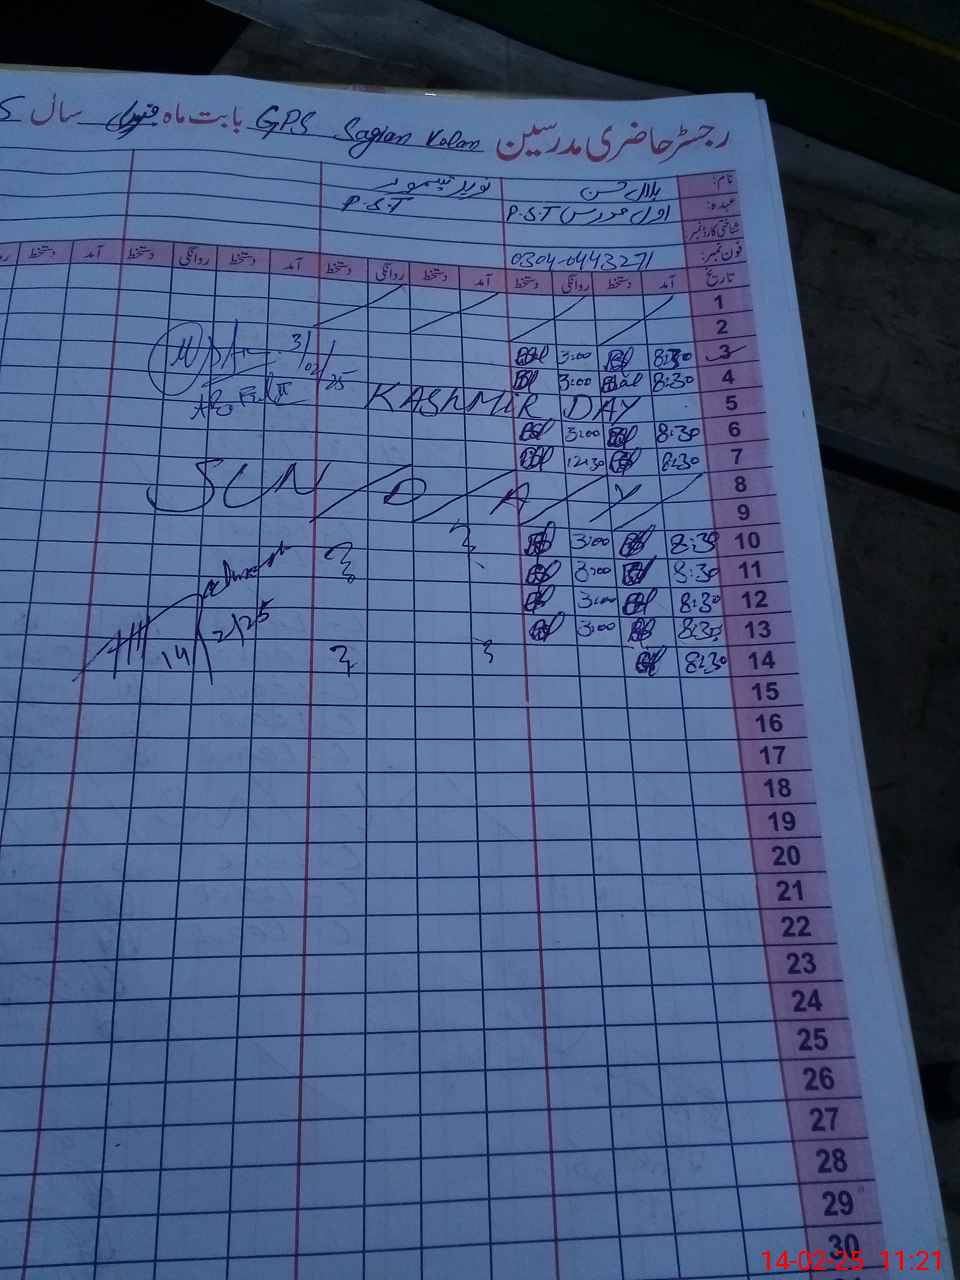 رجسٹر حاضری مدرسین GPS Sagian Kalan بابت ماہ فروری سال
نام: بلال حسن نوید
عہدہ: اول مدرس P.S.T P.S.T
شناختی کارڈ نمبر
فون نمبر: 0304-0443271
تاریخ آمد دستخط روانگی دستخط آمد دستخط روانگی دستخط آمد دستخط روانگی دستخط آمد دستخط
1
2
3 8:30 3:00 3/02/25
4 8:30 3:00
5 KASHMIR DAY
6 8:30 3:00
7 8:30 12:30
8 SUNDAY
9
10 8:30 3:00
11 8:30 3:00
12 8:30 3:00
13 8:30 3:00
14 8:30 14/2/25
15
16
17
18
19
20
21
22
23
24
25
26
27
28
29
30
14-02-25 11:21